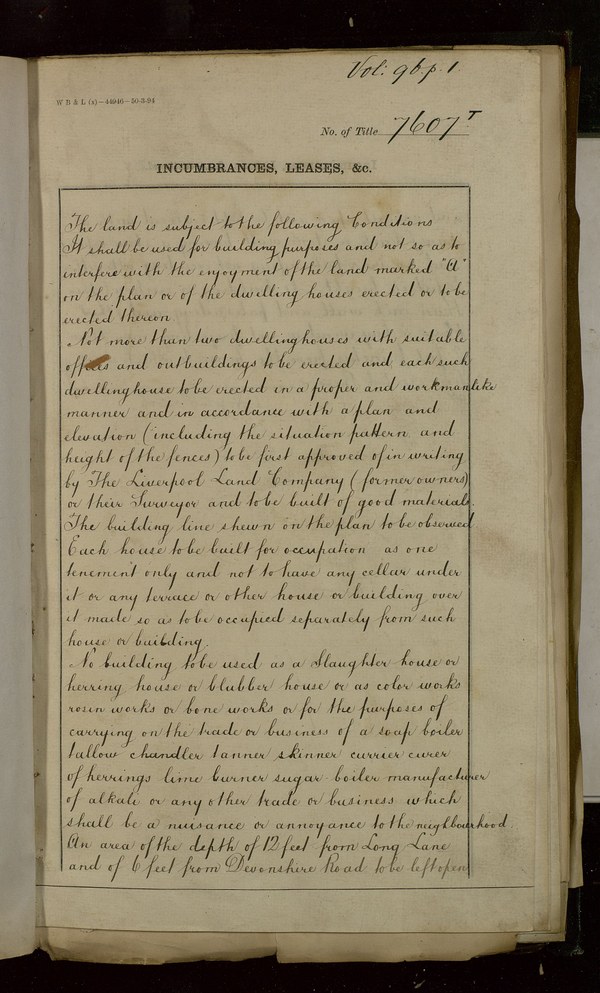 Vol: 96 p. 1
W B & L (s)—44946—30-3-94
No. of Title 7607 T
INCUMBRANCES, LEASES, &c.
The land is subject to the following Conditions
It shall be used for building purposes and not so as to
interfere with the enjoyment of the land marked "A"
on the plan or of the dwelling houses erected or to be
erected thereon
Not more than two dwellinghouses with suitable
offices and outbuildings to be erected and each such
dwellinghouse to be erected in a proper and workmanlike
manner and in accordance with a plan and
elevation (including the situation pattern and
height of the fences) to be first approved of in writing
by The Liverpool Land Company (former owners)
or their Surveyor and to be built of good materials.
The building line shewn on the plan to be observed.
Each house to be built for occupation as one
tenement only and not to have any cellar under
it or any terrace or other house or building over
it made so as to be occupied separately from such
house or building.
No building to be used as a Slaughter house or
herring house or blubber house or as color works
rosin works or bone works or for the purposes of
carrying on the trade or business of a soap boiler
tallow chandler tanner skinner currier curer
of herrings lime burner sugar boiler manufacturer
of alkali or any other trade or business which
shall be a nuisance or annoyance to the neighbourhood
An area of the depth of 12 feet from Long Lane
and of 6 feet from Devonshire Road to be left open